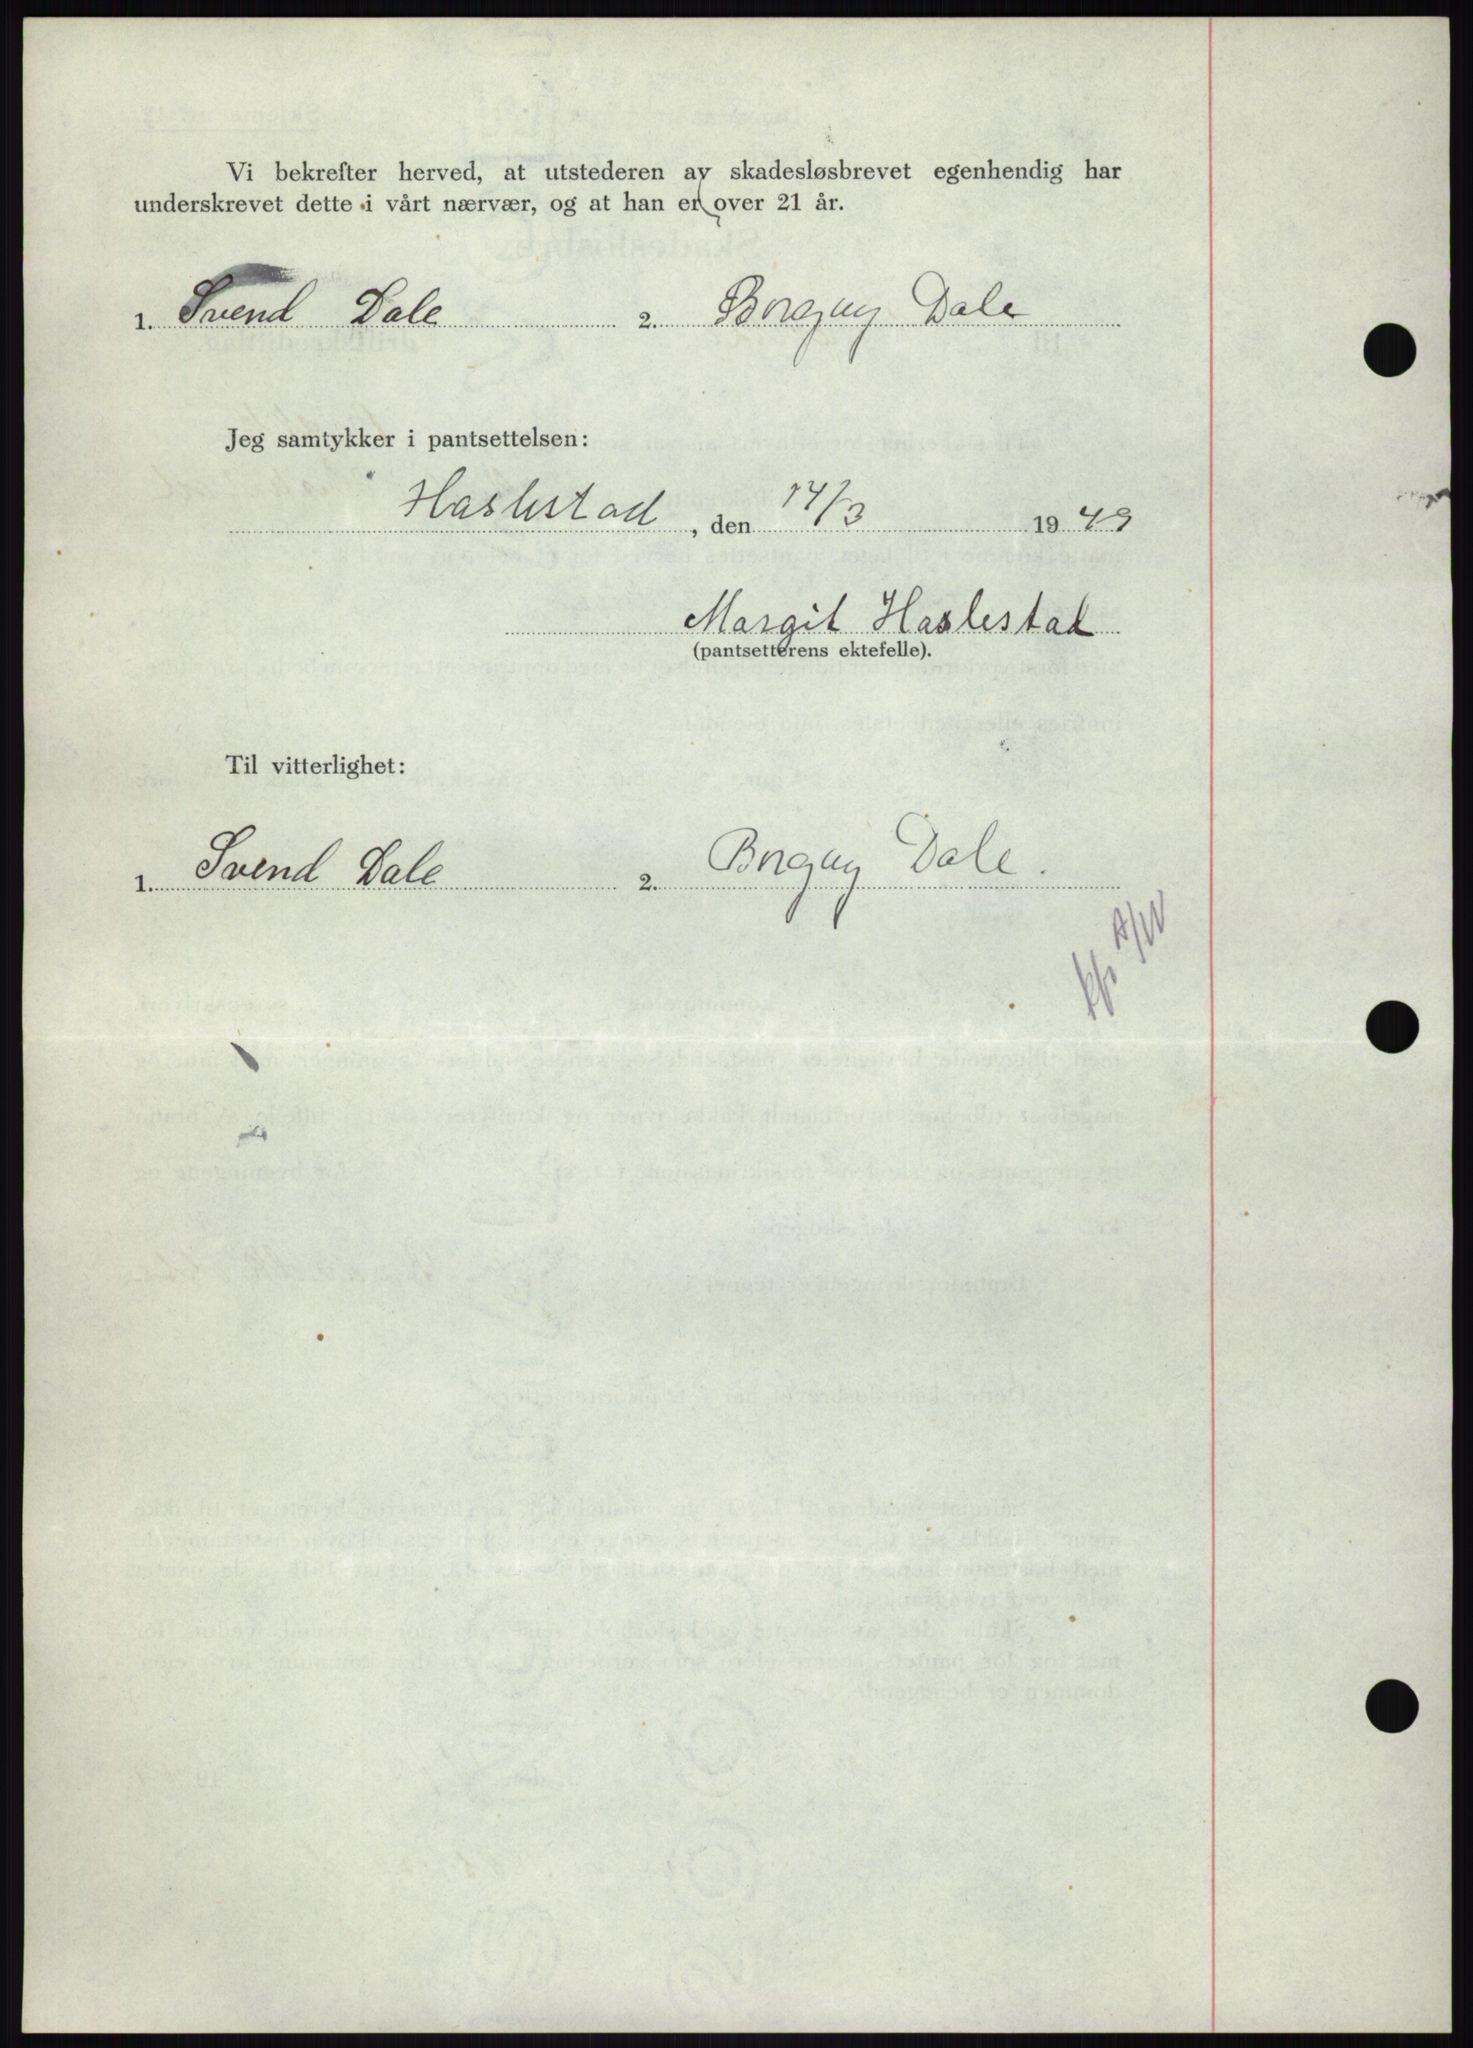 Vi bekrefter herved, at utstederen av skadesløsbrevet egenhendig har
underskrevet dette i vårt nærvær, og at han er over 21 år.
1. Svend Dale 2. Borgny Dale
Jeg samtykker i pantsettelsen:
Haslestad, den 14/3 1949
Margit Haslestad
(pantsetterens ektefelle).
Til vitterlighet:
1. Svend Dale 2. Borgny Dale.